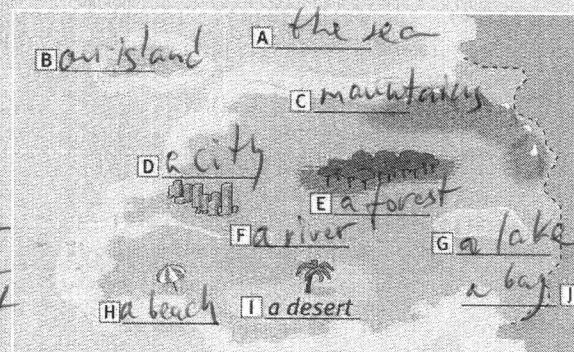 A the sea
B an island
C mountains
D a city
E a forest
F a river
G a lake
H a beach
I a desert
a bay J